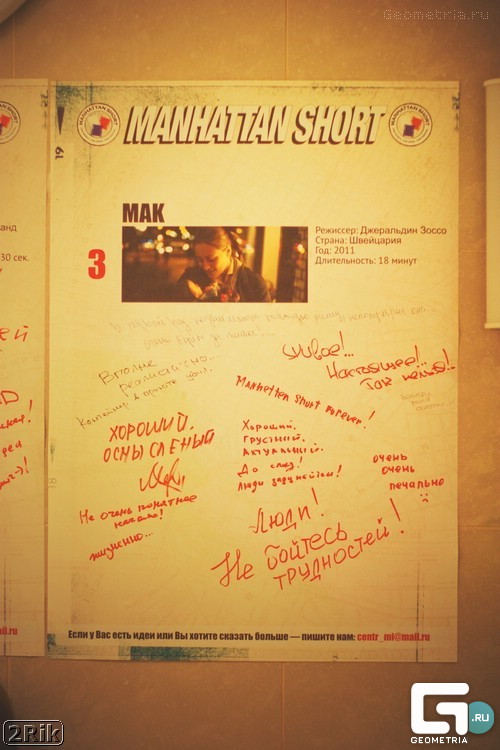 Geometria.ru
MANHATTAN SHORT
MANHATTAN SHORT
MANHATTAN SHORT
19
МАК
3
Режиссер: Джеральдин Зоссо
Страна: Швейцария
Год: 2011
Длительность: 18 минут
30 сек.
живое!..
Настоящее!..
Так нельзя!..
Вполне
реалистично...
Manhatten Short forever!
ХОРОШИЙ,
ОСМЫСЛЕНЫЙ
Хороший,
Грустный,
Актуальный.
До слез!
Люди задумайтесь!
очень
очень
печально
:(
Не очень понятное
начало!
жизненно...
Люди!
Не бойтесь
ТРУДНОСТЕЙ!
Если у Вас есть идеи или Вы хотите сказать больше — пишите нам: centr_mi@mail.ru
il.ru
2Rik
G .RU
GEOMETRIA